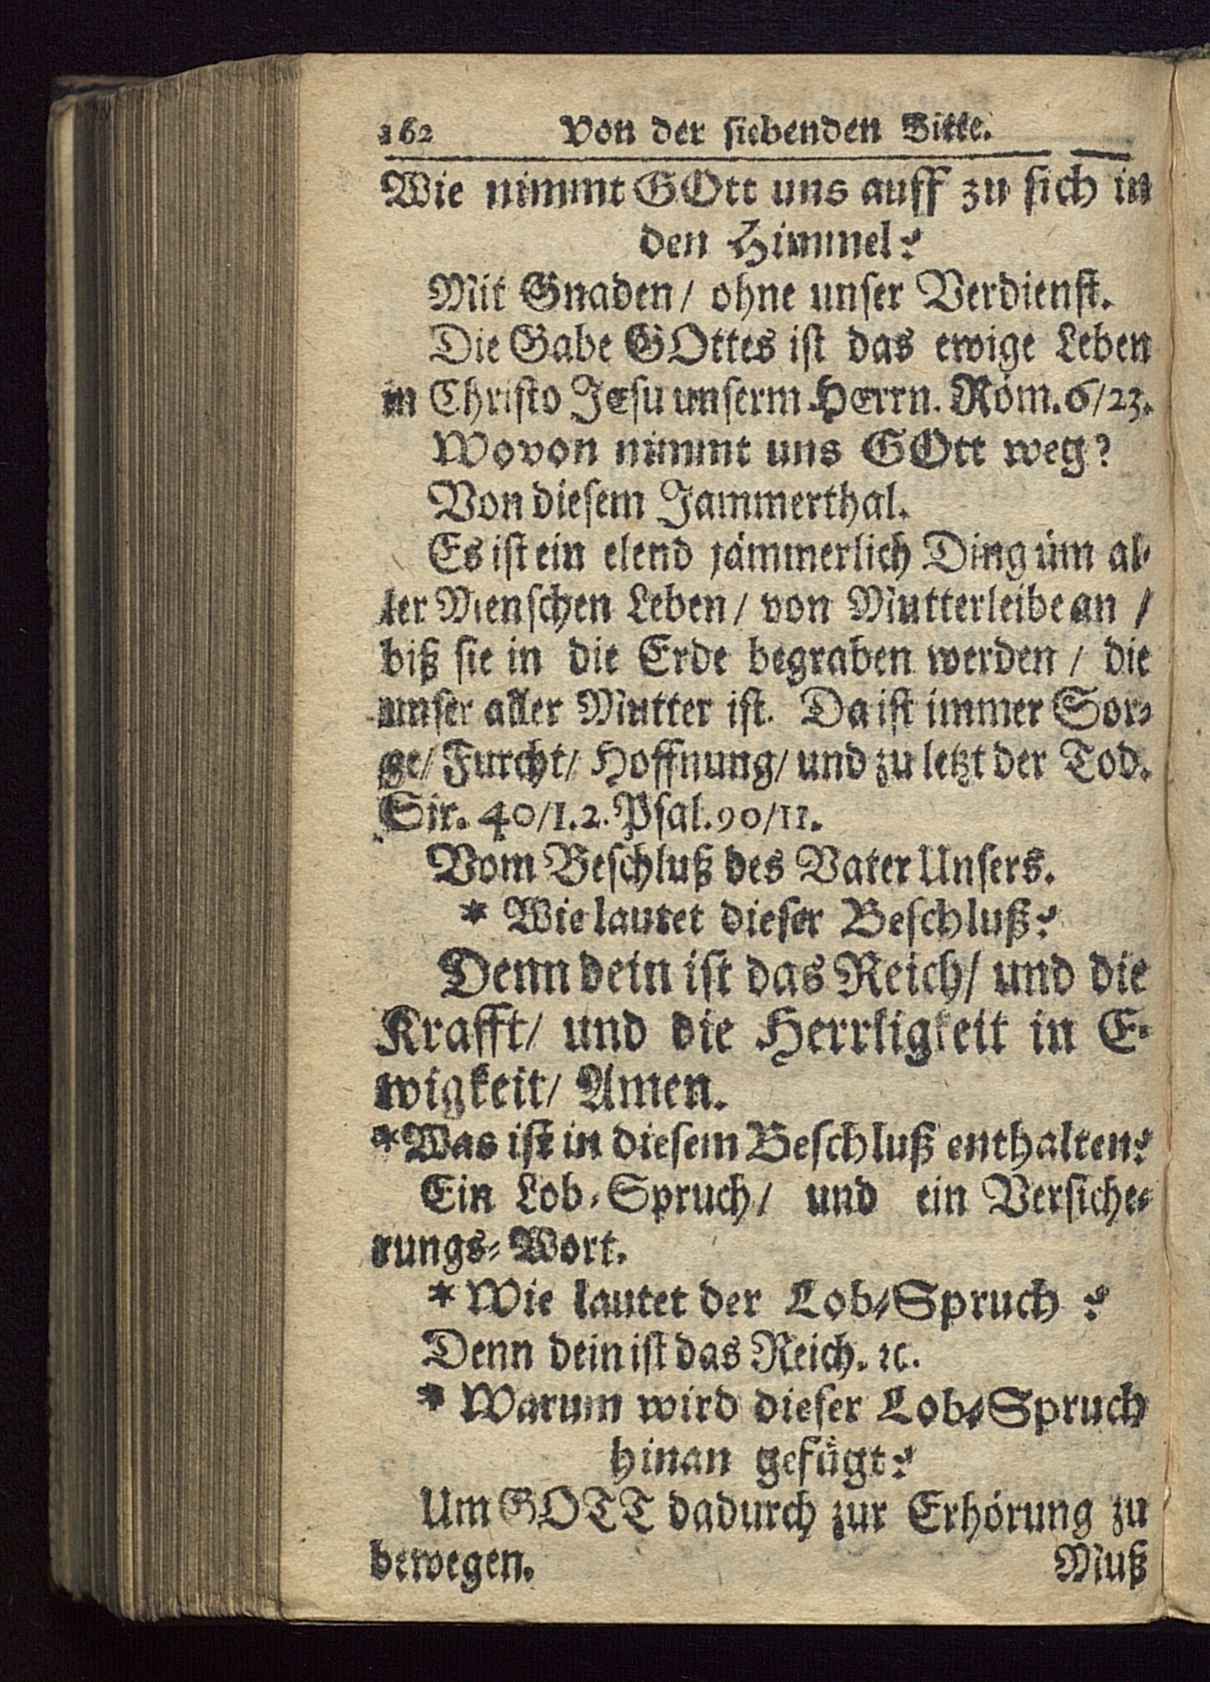 162 Von der siebenden Bitte.
Wie nimmt GOtt uns auff zu sich in
den Himmel?
Mit Gnaden/ ohne unser Verdienst.
Die Gabe GOttes ist das ewige Leben
in Christo JEsu unserm HErrn. Röm. 6/23.
Wovon nimmt uns GOtt weg?
Von diesem Jammerthal.
Es ist ein elend jämmerlich Ding üm al-
ler Menschen Leben/ von Mutterleibe an /
biß sie in die Erde begraben werden / die
unser aller Mutter ist. Da ist immer Sor-
ge/ Furcht/ Hoffnung/ und zu letzt der Tod.
Sir. 40/1.2. Psal. 90/11.
Vom Beschluß des Vater Unsers.
* Wie lautet dieser Beschluß?
Denn dein ist das Reich/ und die
Krafft/ und die Herrligkeit in E-
wigkeit/ Amen.
* Was ist in diesem Beschluß enthalten?
Ein Lob-Spruch/ und ein Versiche-
rungs-Wort.
* Wie lautet der Lob-Spruch ?
Denn dein ist das Reich. ꝛc.
* Warum wird dieser Lob-Spruch
hinan gefügt?
Um GOTT dadurch zur Erhörung zu
bewegen. Muß